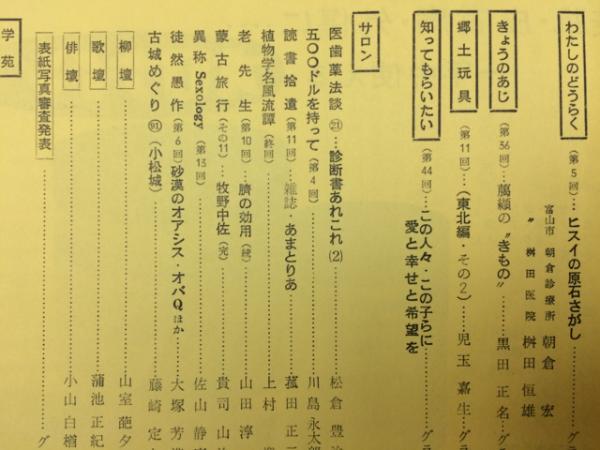 わたしのどうらく（第5回）…ヒスイの原石さがし
富山市 朝倉診療所 朝倉 宏
〃 桝田医院 桝田 恒雄
きょうのあじ（第36回）…萬纈の〝きもの〟………黒田 正名…グ
郷土玩具（第11回）…（東北編・その2）……児玉 嘉生…グラ
知ってもらいたい（第44回）…この人々・この子らに
愛と幸せと希望を………グラ
サロン
医歯薬法談㉑…診断書あれこれ(2)………松倉 豊
五〇〇ドルを持って（第4回）………川島 永太郎
読書拾遺（第11回）…雑誌・あまとりあ………菰田 正二
植物学名風流譚（終回）………上村
老先生（第10回）…臍の効用（続）………山田 淳
蒙古旅行（その11）…牧野中佐（完）………貴司 山
異称 Sexology（第13回）………佐山 静
徒然愚作（第6回）砂漠のオアシス・オバQほか………大塚 芳
古城めぐり�91（小松城）………藤崎 定
柳壇………山室 葩夕
歌壇………蒲池 正紀
俳壇………小山 白楢
表紙写真審査発表………グ
学苑